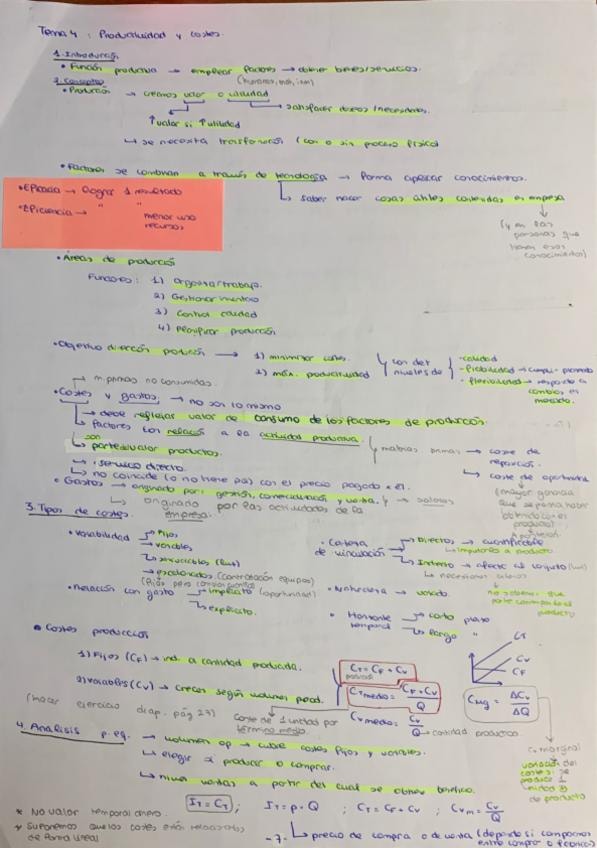 Tema 4: Productividad y costes.
1. Introducción
• Función productiva → emplear factores → obtener bienes/servicios.
(humanos, mat, inm)
2. Conceptos
• Producción → creamos valor o utilidad
satisfacer deseos/necesidades.
↑valor si ↑utilidad
↳ se necesita trasformación (con o sin proceso físico)
• Factores se combinan a través de tecnología → forma aplicar conocimientos.
↳ saber hacer cosas útiles contenidas en empresa
(y en las personas que tienen esos conocimientos)
• Eficacia → lograr 1 resultado
• Eficiencia → " "
menor uso
recursos
• Áreas de producción
Funciones: 1) Organizar trabajo.
2) Gestionar inventario
3) Control calidad
4) Planificar producción
• Objetivo dirección producción → 1) minimizar costes.
2) máx. productividad
con det niveles de
- calidad
- fiabilidad → cumpli.
- flexibilidad → respuesta a cambios en mercado.
m. primas no consumidas.
• Costes y gastos → no son lo mismo
↳ debe reflejar valor de consumo de los factores de producción.
↳ factores con relación a la actividad productiva.
↳ son parte del valor productos.
materias primas → coste de reposición.
↳ coste de oportunidad
(mayor ganancia que se podría haber obtenido con el producto)
↳ servicio directo.
↳ no coincide (o no tiene pq) con el precio pagado x él.
• Gastos → originado por: gestión, comercialización y venta. → salarios
↳ originado por las actividades de la empresa.
3. Tipos de costes.
• Variabilidad → Fijos
→ variables
→ semivariables (luz)
→ escalonados (contratación equipos)
• Criterio de vinculación → Directos → cuantificable
↳ imputarlos a producto.
→ Indirecto → afecta al conjunto (luz)
↳ necesarios
• Relación con gasto → implícito (oportunidad)
→ explícito.
• Naturaleza → variado.
• Horizonte temporal → corto plazo
→ largo "
• Costes producción
1) Fijos (CF) → ind. a cantidad producida.
2) Variables (Cv) → crecen según volumen prod.
(hacer ejercicio diap. pág 27)
CT = CF + Cv
CT medio = CF + Cv / Q
coste de 1 unidad por término medio.
Cv medio = Cv / Q → cantidad producción
CT
Cv
CF
CMg = ΔCv / ΔQ
C. marginal
variación del coste si se produce 1 unidad de producto
4. Análisis p. eq.
→ volumen op → cubre costes fijos y variables.
↳ elegir si producir o comprar.
↳ nivel ventas a partir del cual se obtiene beneficio.
IT = CT ; IT = p · Q ; CT = CF + Cv ; Cvm = Cv / Q
* No valor temporal dinero.
* Suponemos que los costes están relacionados de forma lineal
- 7 -
↳ precio de compra o de venta (depende si compramos entre comprar o fabricar)